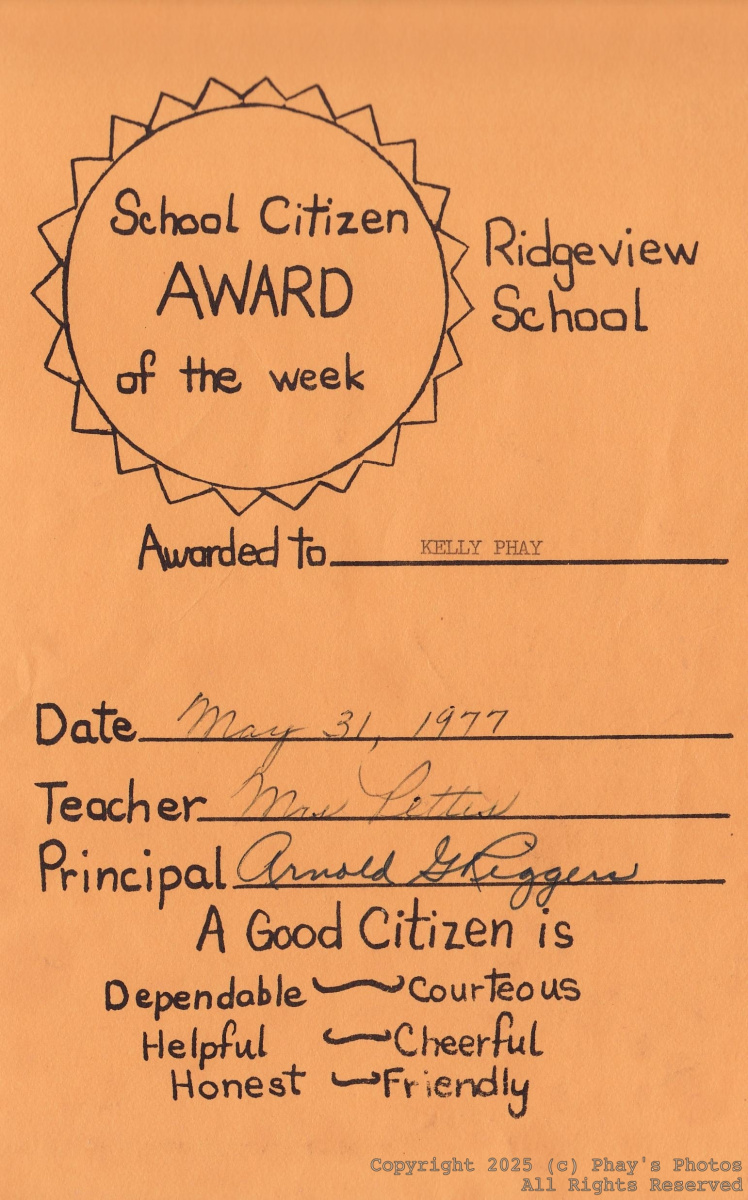 School Citizen
AWARD
of the week
Ridgeview
School
Awarded to KELLY PHAY
Date May 31, 1977
Teacher Mrs Pettis
Principal Arnold G Riggers
A Good Citizen is
Dependable Courteous
Helpful Cheerful
Honest Friendly
Copyright 2025 (c) Phay's Photos
All Rights Reserved